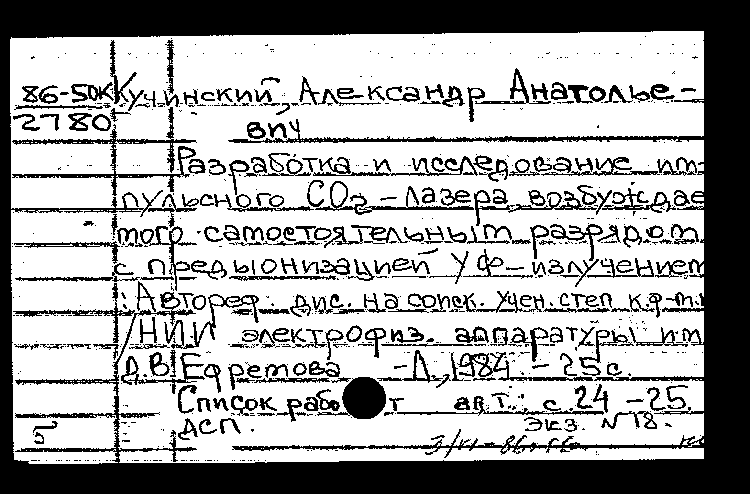 86-50К Кучинский, Александр Анатолье-
2780 вич
Разработка и исследование им-
пульсного СО2-лазера, возбуждае
мого самостоятельным разрядом
с предыонизацией УФ-излучением
: Автореф. дис. на соиск. учен. степ к.ф-м.н
/НИИ электрофиз. аппаратуры им
Д.В. Ефремова -Л., 1984. - 25с.
Список работ авт.: с. 24-25.
ДСП. Экз. N 18.
5